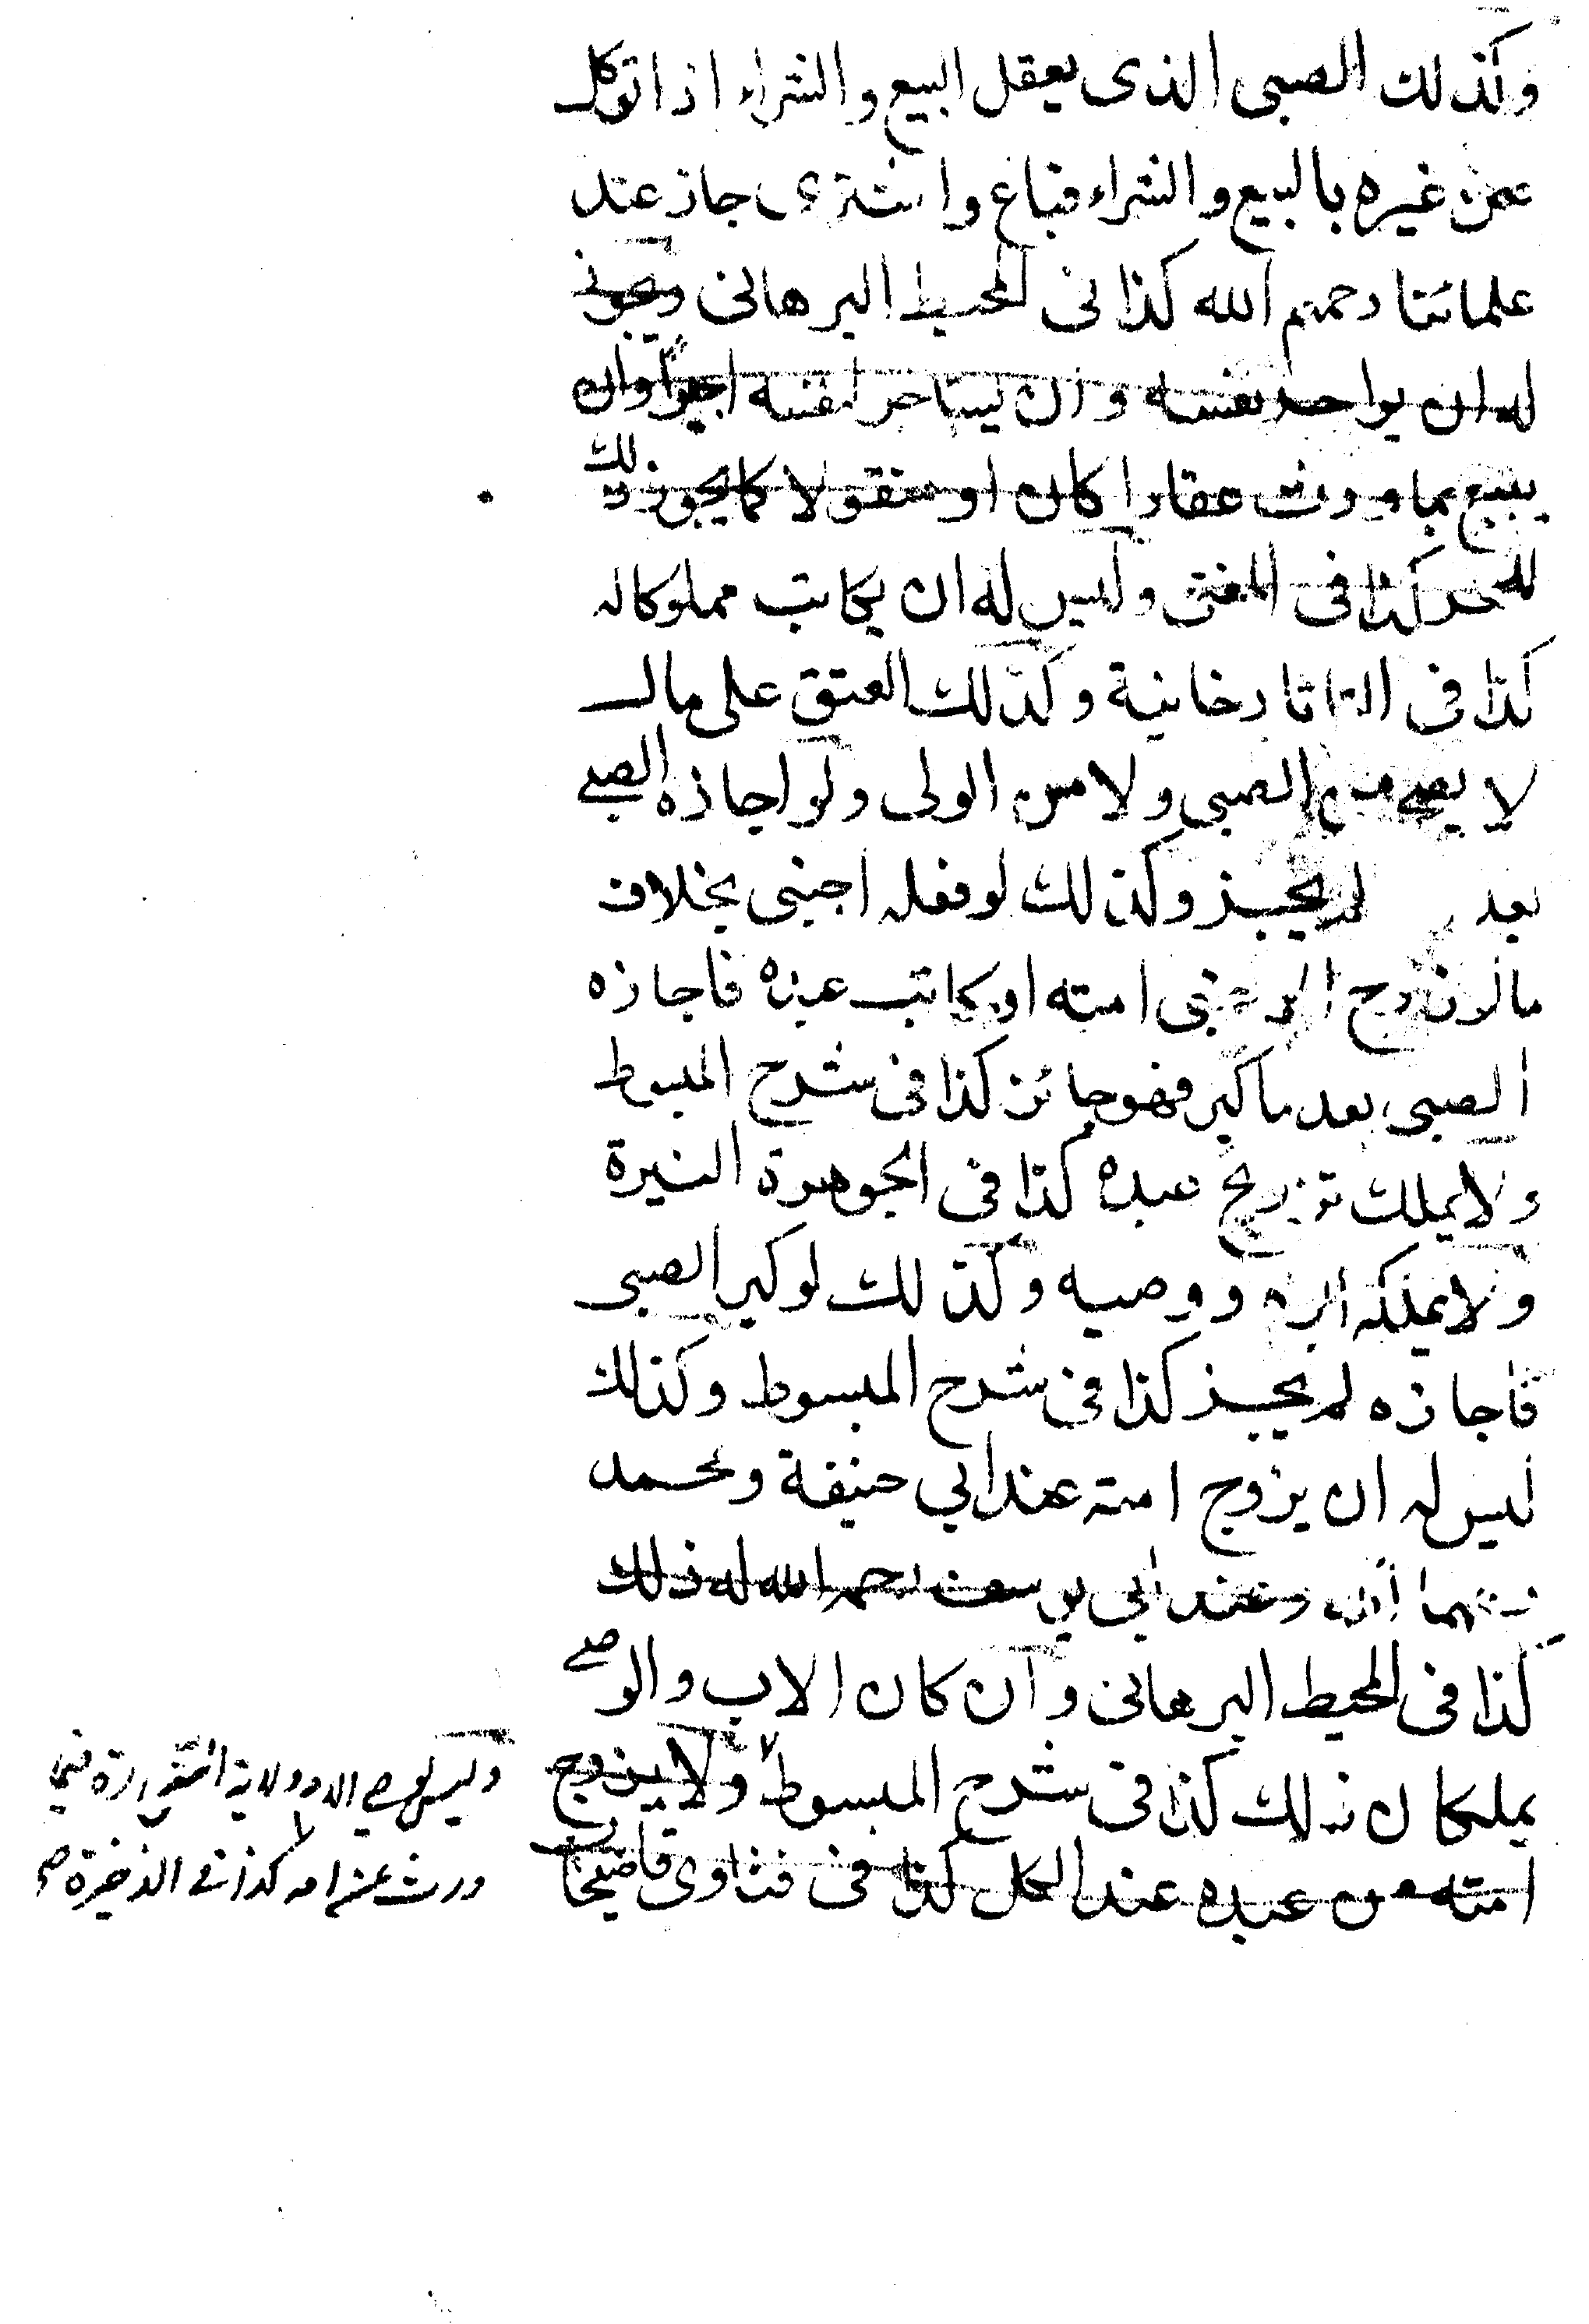 وكذلك الصبى الذى يعقل البيع والشراء اذا توكل
عن غيره بالبيع والشراء فباع واشترى جاز عند
علمائنا رحمهم الله كذا فى المحيط البرهانى ويجوز
له ان يواجر نفسه وان يستاجر لنفسه اجيرا وان
يبيع بما ورث عقارا كان او منقولا كما يجوز ذلك
للحر كذا فى المغنى وليس له ان يكاتب مملوكا له
كذا فى التاتارخانية وكذلك العتق على مال
لا يصح من الصبى ولا من الولى ولو اجازه الصبى
بعد لم يجز وكذلك لو فعله اجنبى بخلاف
ما لو زوج الاجنبى امته او كاتب عبده فاجازه
الصبى بعد ما كبر فهو جائز كذا فى شرح المبسوط
ولا يملك تزويج عبده كذا فى الجوهرة النيرة
ولا يملكه ابوه ووصيه وكذلك لو كبر الصبى
فاجازه لم يجز كذا فى شرح المبسوط وكذلك
ليس له ان يزوج امته عند ابي حنيفة ومحمد
الله وعند ابى يوسف رحمه الله له ذلك
كذا فى المحيط البرهانى وان كان الاب والوصى
يملكان ذلك كذا فى شرح المبسوط ولا يزوج
امته من عبده عند الكل كذا فى فتاوى قاضيخان
وليس لوصي الام ولاية التجارة فيما
ورث عن امه كذا في الذخيرة صح